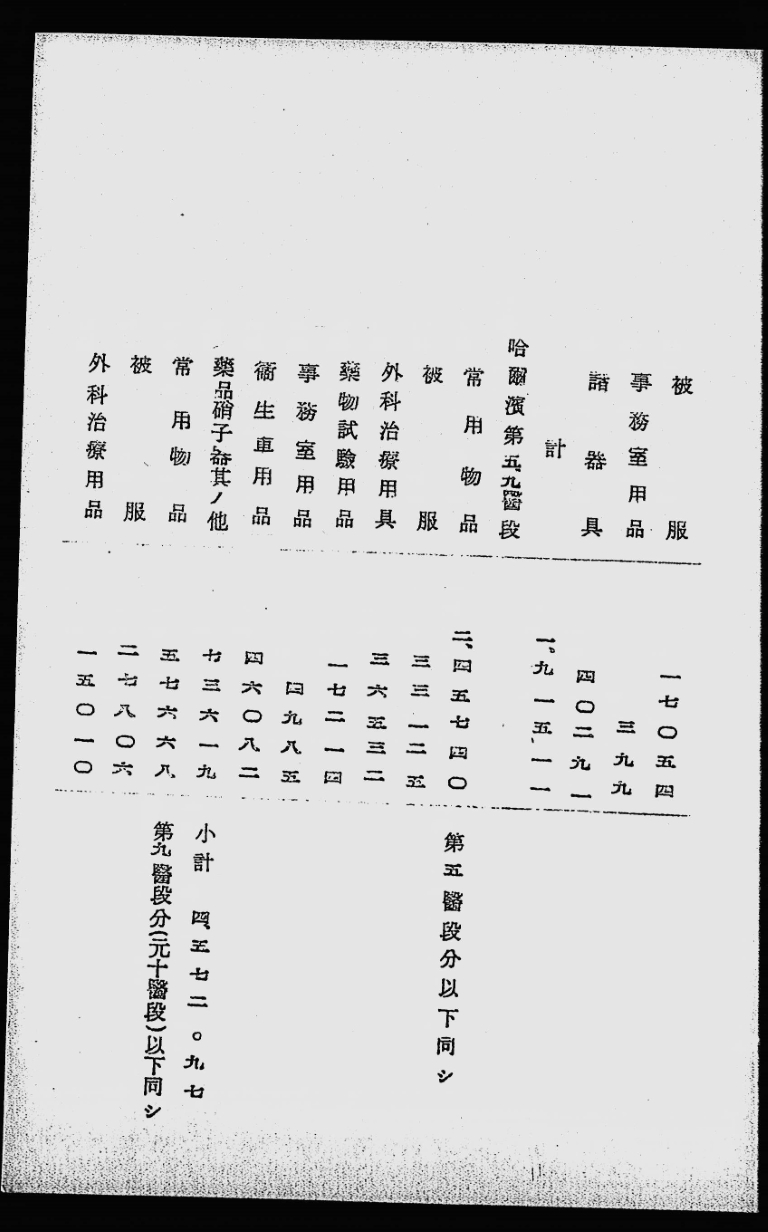 被服 一七〇五四
事務室用品 三九九
諸器具 四〇二九一
計 一、九一五一一
哈爾濱第五、九醫段
常用物品 二、四五七四〇 第五醫段分以下同シ
被服 三三一二五
外科治療用具 三六五三二
藥物試驗用品 一七二一四
事務室用品 四九八五
衞生車用品 四六〇八二
藥品硝子器其ノ他 七三六一九 小計 四、五七二。九七
常用物品 五七六六八 第九醫段分(元十醫段)以下同シ
被服 二七八〇六
外科治療用品 一五〇一〇